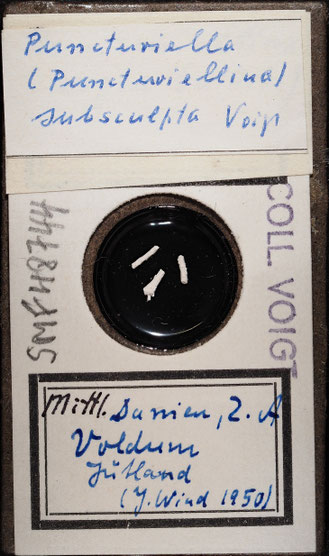 Puncturiella
(Puncturiellina)
subsculpta Voigt
COLL. VOIGT
SMF 48744
Mittl. Danien, Z. A
Voldum
Jütland
(J. Wind 1950)